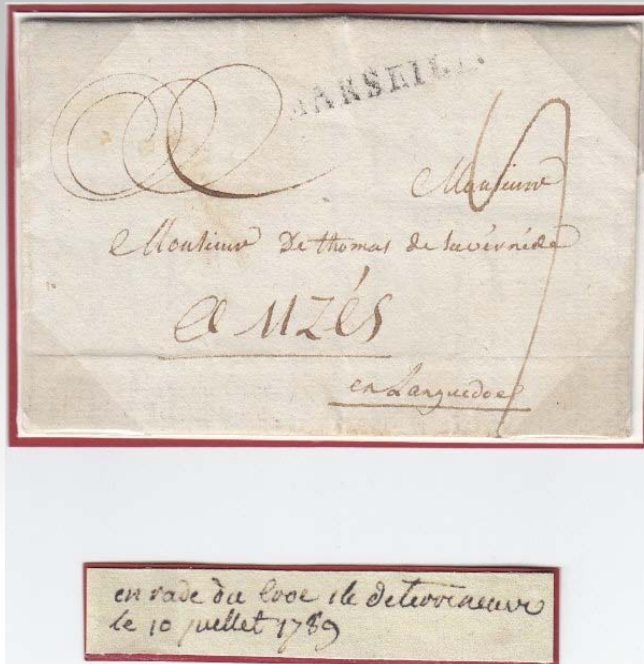 MARSEILLE
Monsieur
Monsieur De thomas de lavérnède
A UZÉS
en Languedoc
en rade du croc ile de terreneuve
le 10 juillet 1789